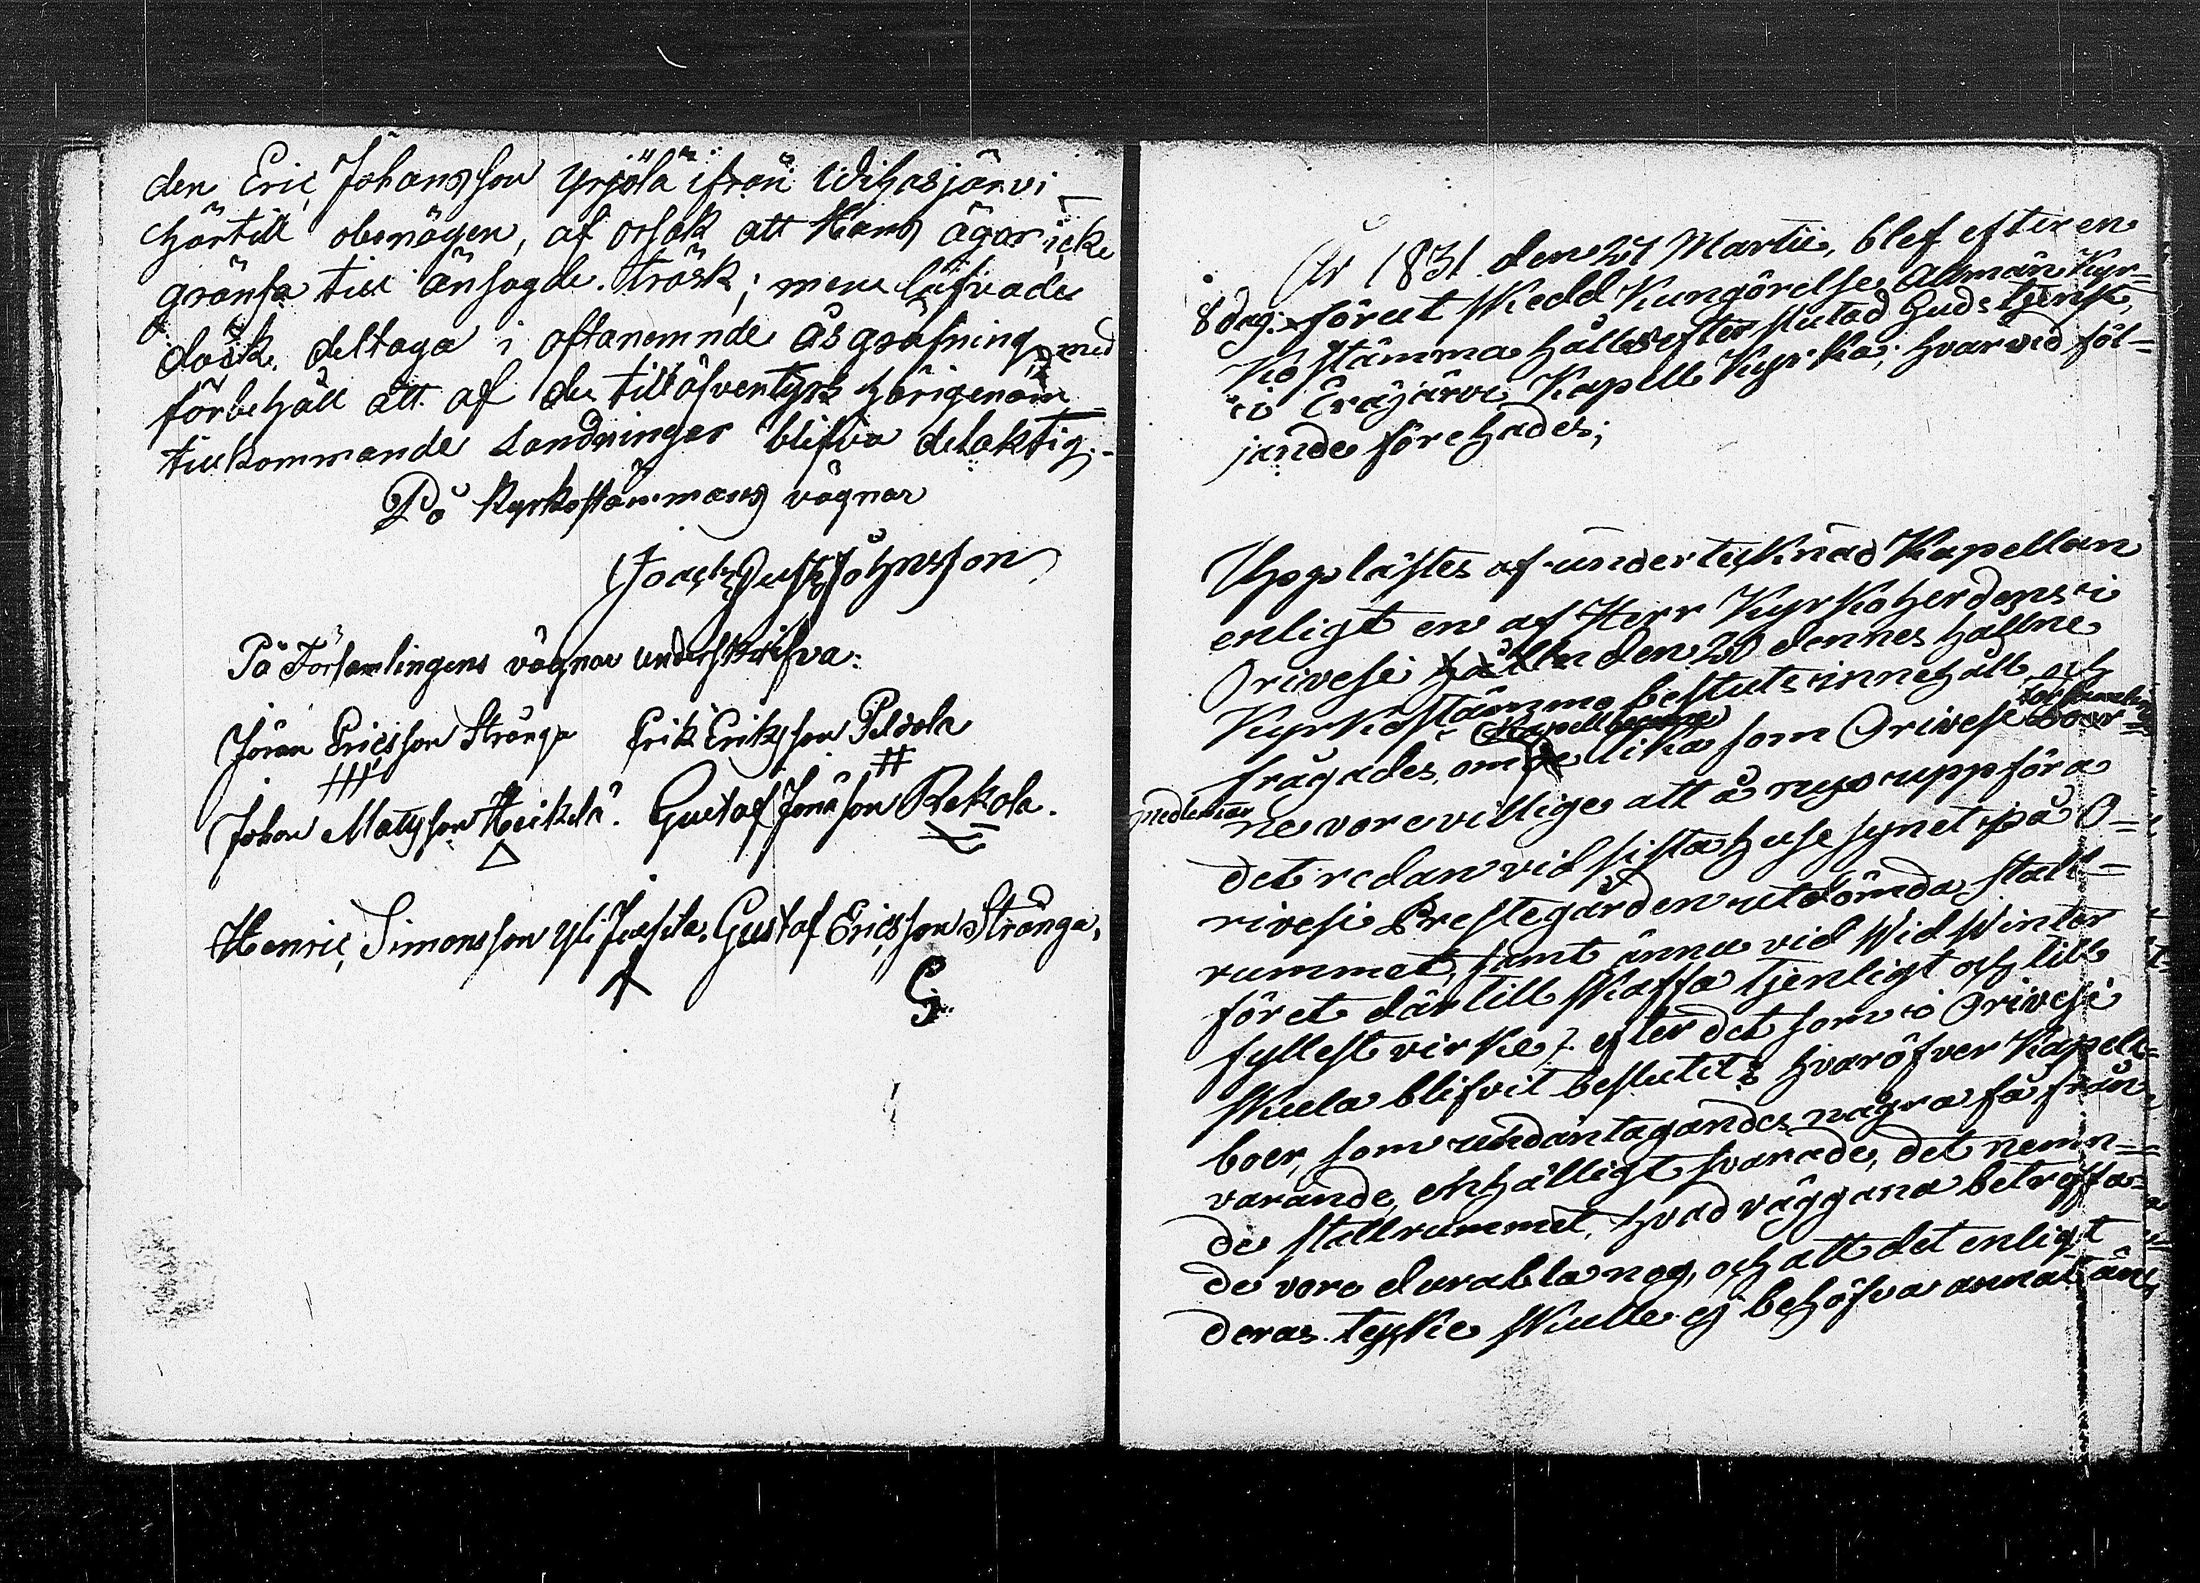 den Eric Johansson Yrjölä ifrån Wihasjärvi
härtill obenägen, af orsak att Hans ägor icke
gränsa till ansagde träsk; men lofvade
dock deltaga i oftanemnde åsgräfning, med
förbehåll att af de tilläfventyrs härigenom
tillkommande landningar blifva delaktig.
På Kyrkostämmans vägnar
Joach: Gust: Johnsson
På Församlingens vägnar underskrifva:
Jöran Ericsson Strånga Erik Eriksson Peldola
Johan Matsson Heikelä. Gustaf Jonasson Rekola.
Henric Simonsson Yli Juusila. Gustaf Ericsson Strånga.
G.
År 1831 den 27 Martii, blef efter en
8 dagr förut skedd Kungörelse Allmän Kyr=
kostämma hållen efter slutad Gudstjenst,
i Eräjärvi Kapell Kyrka; hvarvid föl=
jande förehades;
Upplästes af undertecknad Kapellan
enligt en af Herr Kyrkoherdens i
Orivesi hållen den 20 dennes hållne
Kyrkostämma besluts innehåll och
Kapellboerne Församlings
frågades, om de lika som Orivesi Boer=
medlemmar
ne vore villige att å nyo uppföra
det redan vid sista husesynet på O=
rivesi Prestegården utdömda stall=
rummet, samt ännu vid Wid Winter
föret därtill skaffa tjenligt och till
fyllest virke, efter det som i Orivesi
skulla blifvit beslutit; hvaröfver Kapell=
boer, som undantagandes några få från=
varande, enhälligt svarade, det nemn=
de stallrummet, hvad väggana beträffa=
de vore durabla nog, och att det enligt
deras tycke skulle ej behöfva annat än